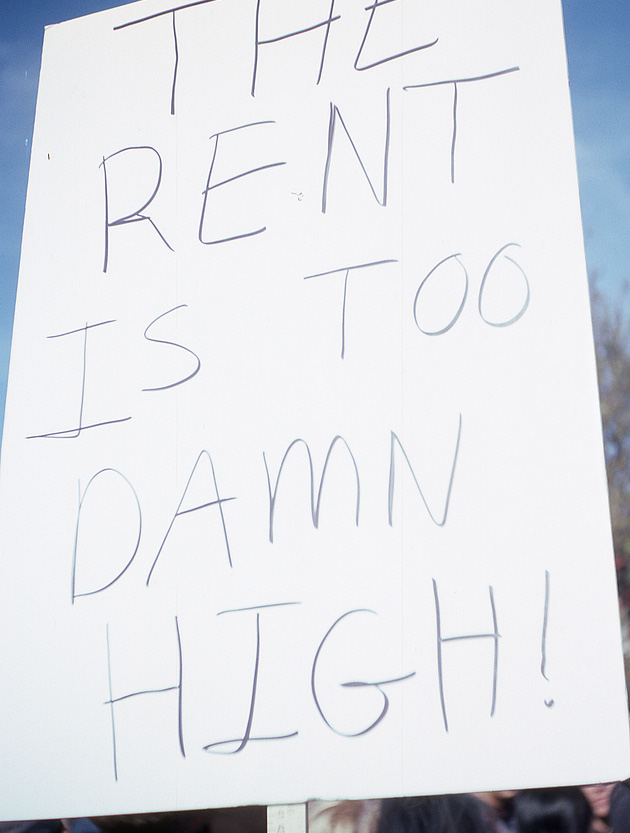 THE
RENT
IS TOO
DAMN
HIGH!